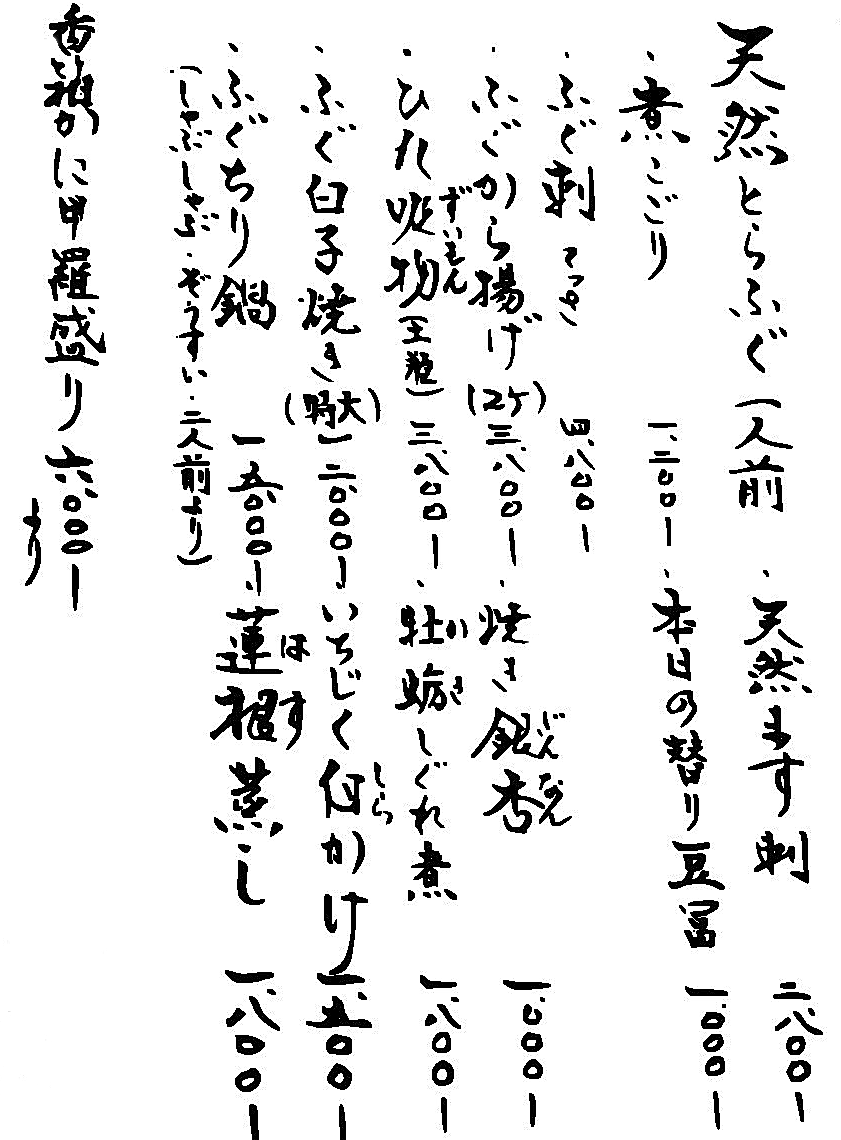 天然とらふぐ 一人前
・煮こごり 一、二〇〇ー
・ふぐ刺 てっさ 四、八〇〇ー
・ふぐから揚げ(2ケ) 三、八〇〇ー
・ひれ吸物 三、八〇〇ー
・ふぐ白子焼き(特大) 一二、〇〇〇ー
・ふぐちり鍋 一五、〇〇〇ー
(しゃぶしゃぶ・ぞうすい・二人前より)
香箱かに甲羅盛り 六、〇〇〇ー
より
・天然ます刺 二、八〇〇ー
・本日の替り豆冨 一、〇〇〇ー
・焼き銀杏 ぎんなん 一、〇〇〇ー
・牡蛎 かき しぐれ煮 一、八〇〇ー
・いちじく白 しら かけ 一、五〇〇ー
・蓮根 はす 蒸し 一、八〇〇ー